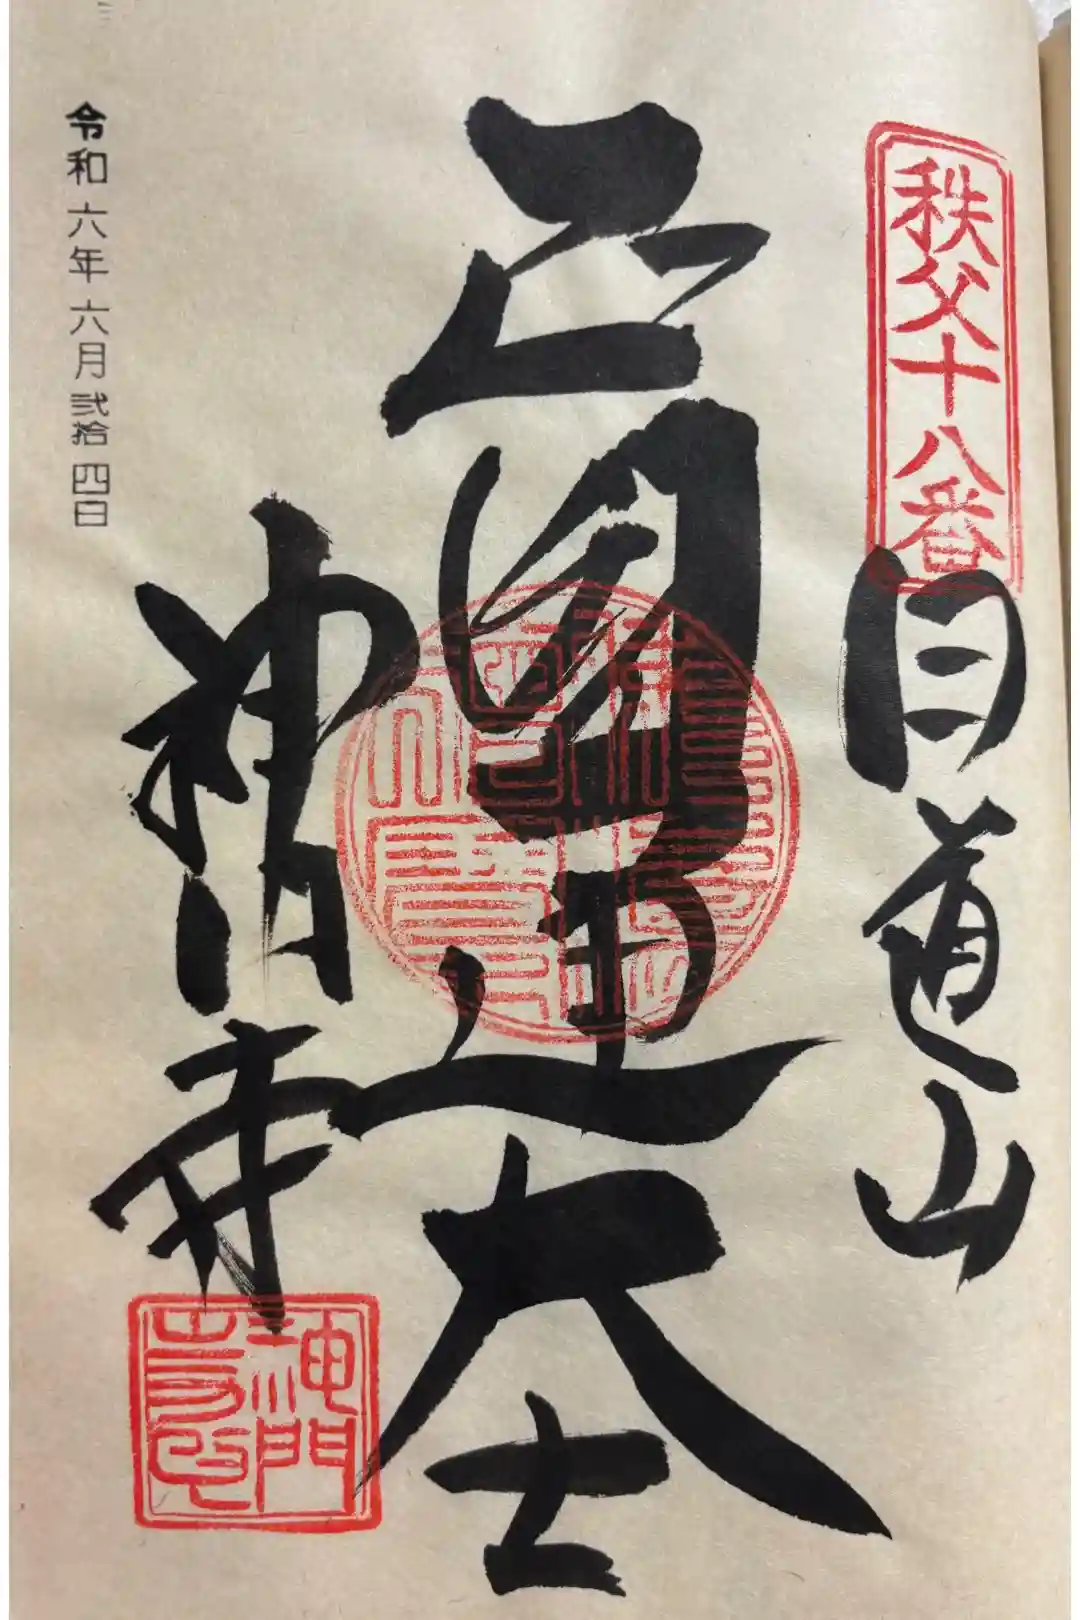 秩父十八番
白道山
正圓通大士
神門寺
神門寺印
令和六年六月弐拾四日